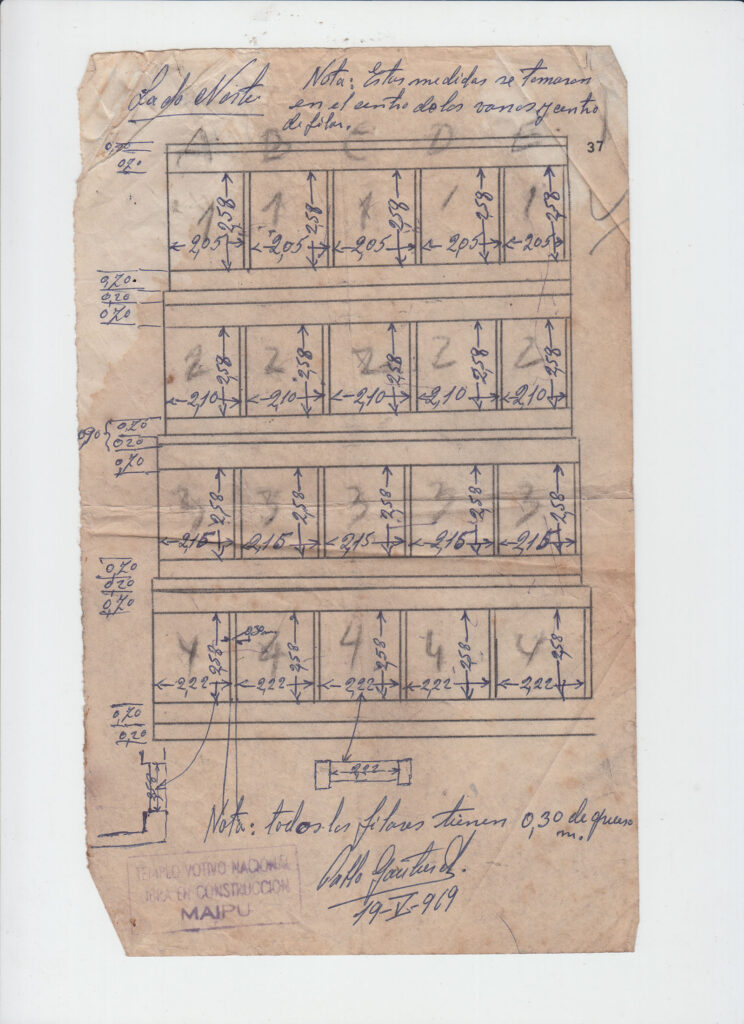 Lado Norte
Nota: Estas medidas se tomaron
en el centro de los vanos y centro
de pilar.
37
A B C D E
0,70
0,20
1 1 1 1 1
2,58 2,58 2,58 2,58 2,58
2,05 2,05 2,05 2,05 2,05
0,70
0,20
0,70
2 2 2 2 2
2,58 2,58 2,58 2,58 2,58
2,10 2,10 2,10 2,10 2,10
0,90
0,70
0,20
0,70
3 3 3 3 3
2,58 2,58 2,58 2,58 2,58
2,15 2,15 2,15 2,15 2,15
0,70
0,20
0,70
4 4 4 4 4
2,58 2,58 2,58 2,58 2,58
2,22 2,22 2,22 2,22 2,22
0,70
0,20
2,22
Nota: todos los pilares tienen 0,30 de grueso
m.
Pablo
19-V-969
TEMPLO VOTIVO NACIONAL
OBRA EN CONSTRUCCION
MAIPU